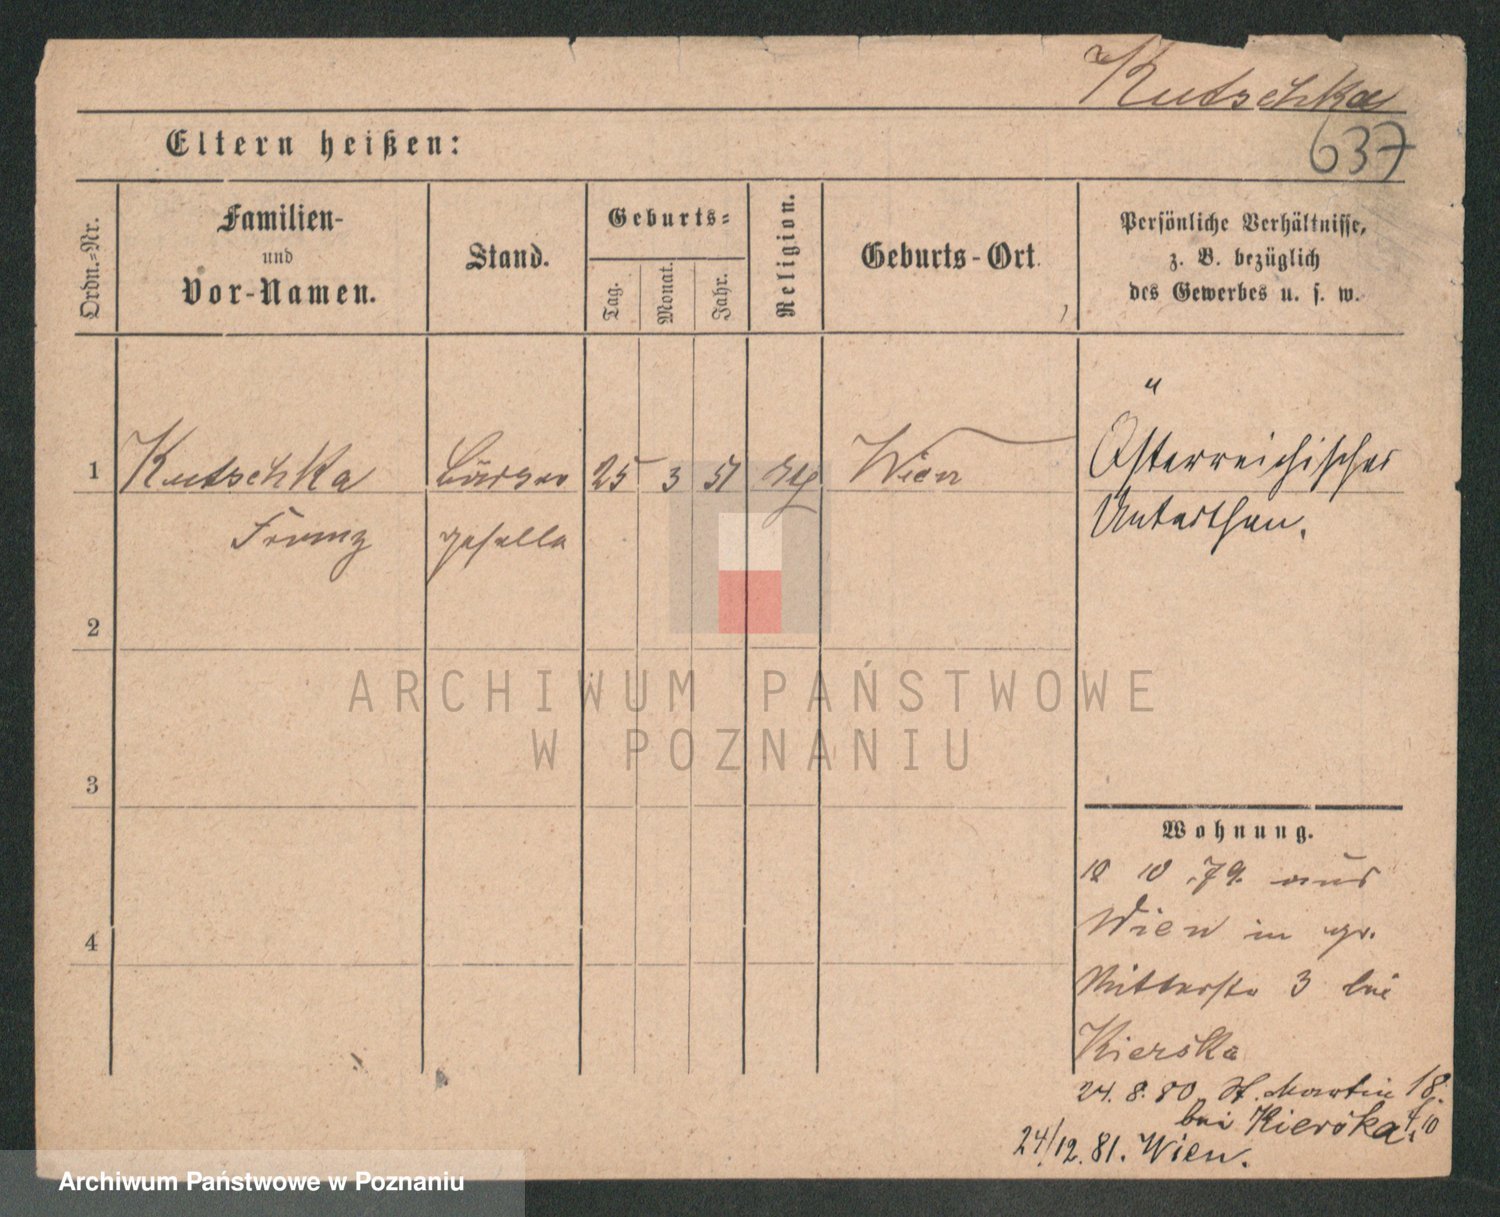 Kutschka
637
Eltern heißen:
Ordn.-Nr.
Familien-
und
Vor-Namen.
Stand.
Geburts-
Tag.
Monat.
Jahr.
Religion.
Geburts-Ort.
Persönliche Verhältnisse,
z. B. bezüglich
des Gewerbes u. s. w.
1 Kutschka 25 3 51 Wien
Franz geselle
Österreichischer
Unterthan.
2
3
4
Wohnung.
10 10 79. aus
Wien in gr.
Ritterstr 3 bei
Kierska
24. 8. 80. St. Martin 18.
bei Kierska 4/10
24/12. 81. Wien.
ARCHIWUM PAŃSTWOWE
W POZNANIU
Archiwum Państwowe w Poznaniu